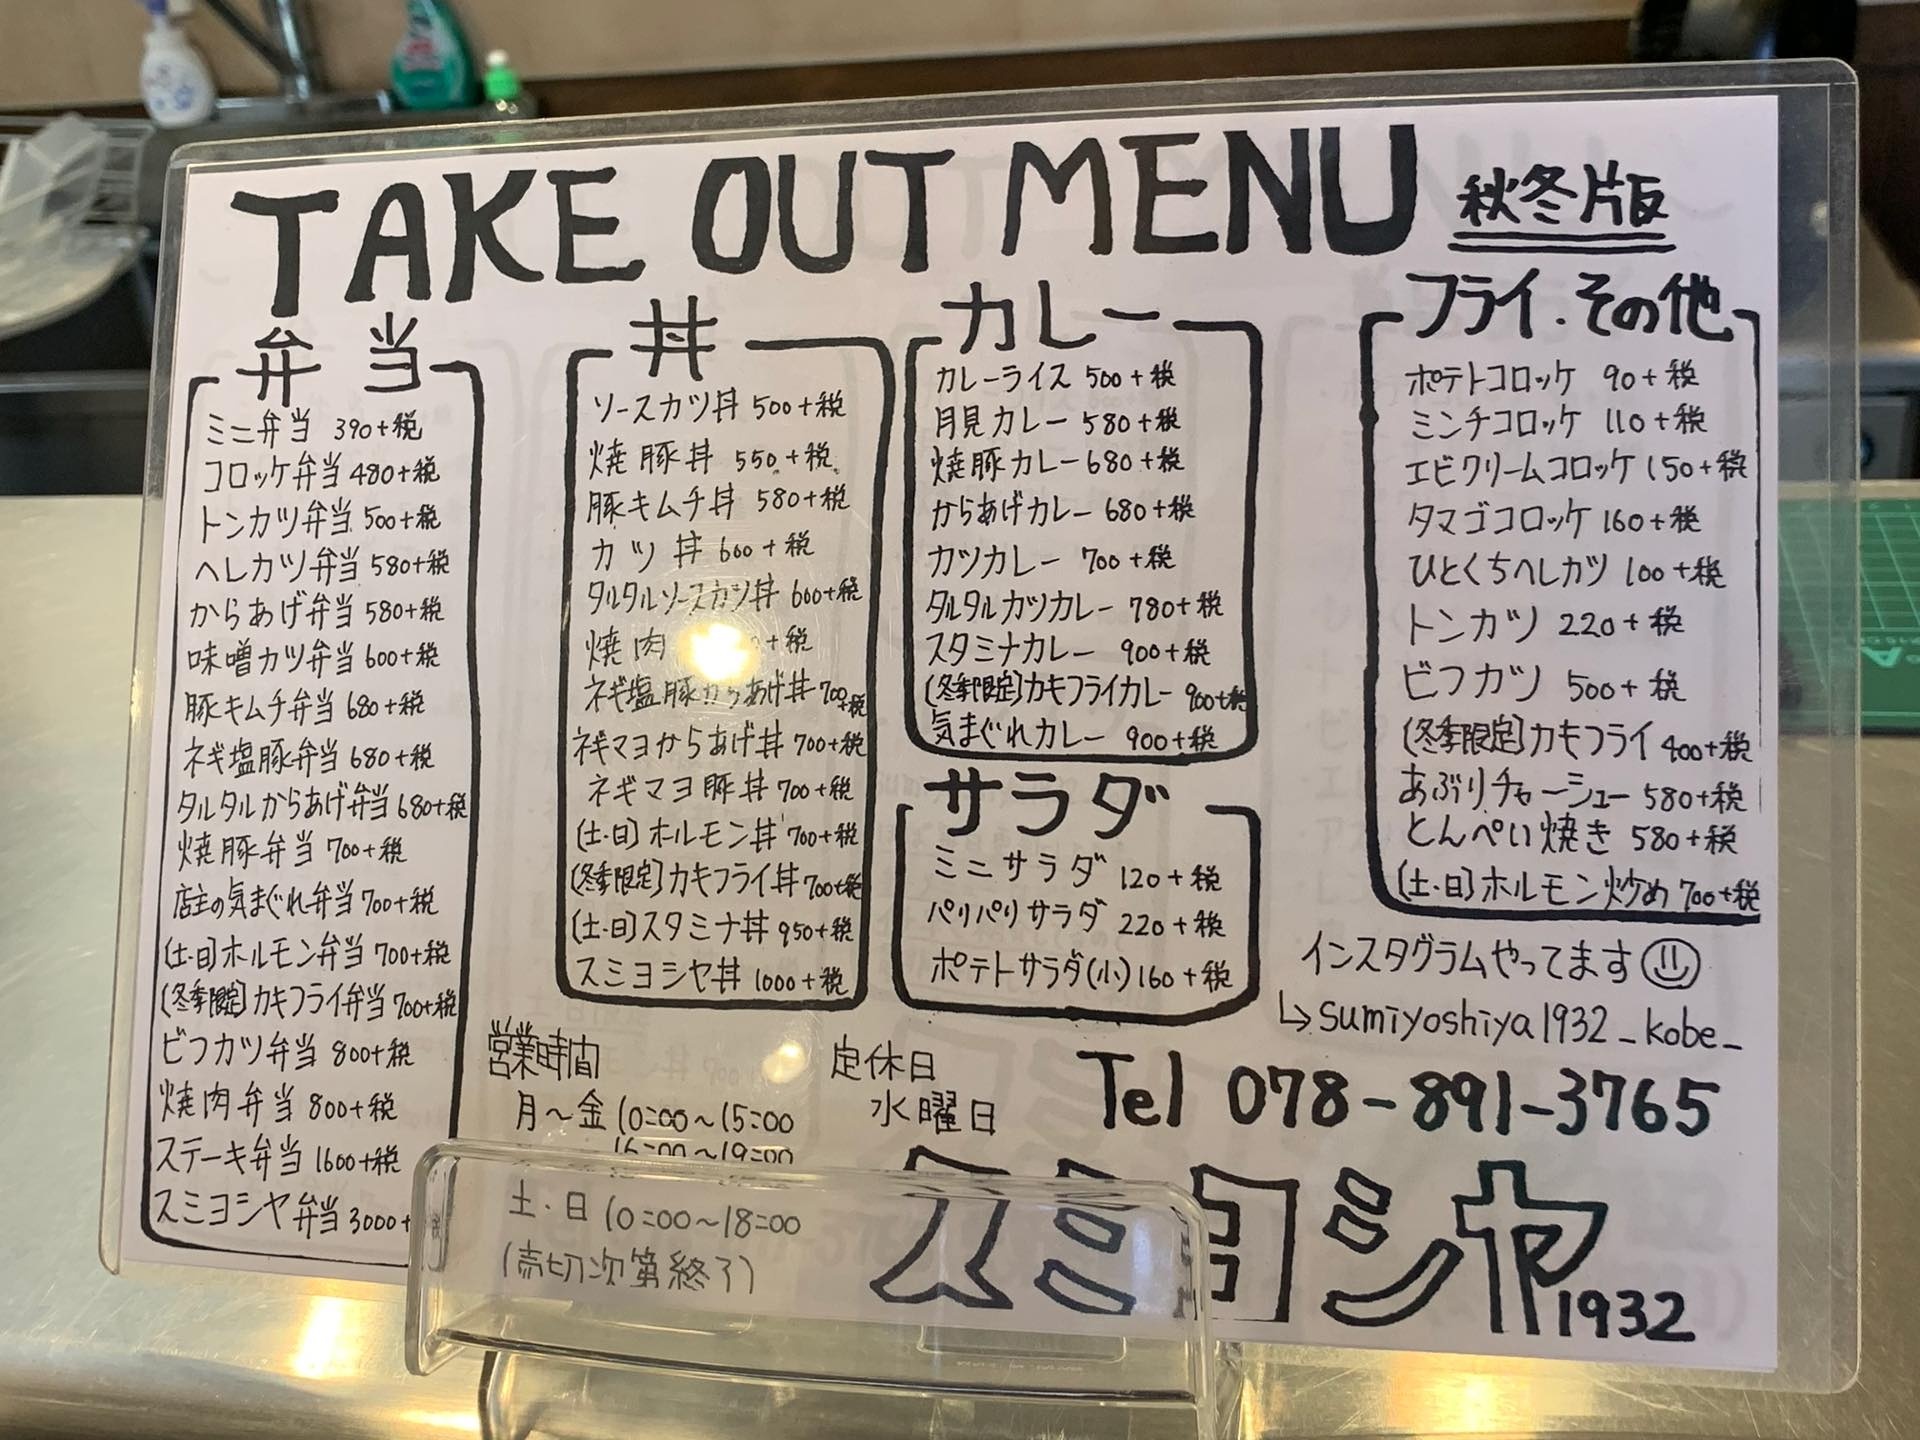 TAKE OUT MENU 秋冬片版
弁当
ミニ弁当 390+税
コロッケ弁当 480+税
トンカツ弁当 500+税
ヘレカツ弁当 580+税
からあげ弁当 580+税
味噌カツ弁当 600+税
豚キムチ弁当 680+税
ネギ塩豚弁当 680+税
タルタルからあげ弁当 680+税
焼豚弁当 700+税
店主の気まぐれ弁当 700+税
(土・日)ホルモン弁当 700+税
(冬季限定)カキフライ弁当 700+税
ビフカツ弁当 800+税
焼肉弁当 800+税
ステーキ弁当 1600+税
スミヨシヤ弁当 3000+税
丼
ソースカツ丼 500+税
焼豚丼 550+税
豚キムチ丼 580+税
カツ丼 600+税
タルタルソースカツ丼 600+税
焼肉 +税
ネギ塩豚からあげ丼 700+税
ネギマヨからあげ丼 700+税
ネギマヨ豚丼 700+税
(土・日)ホルモン丼 700+税
(冬季限定)カキフライ丼 700+税
(土・日)スタミナ丼 950+税
スミヨシヤ丼 1000+税
カレー
カレーライス 500+税
月見カレー 580+税
焼豚カレー 680+税
からあげカレー 680+税
カツカレー 700+税
タルタルカツカレー 780+税
スタミナカレー 900+税
(冬季限定)カキフライカレー 900+税
気まぐれカレー 900+税
サラダ
ミニサラダ 120+税
パリパリサラダ 220+税
ポテトサラダ(小) 160+税
フライ・その他
ポテトコロッケ 90+税
ミンチコロッケ 110+税
エビクリームコロッケ 150+税
タマゴコロッケ 160+税
ひとくちヘレカツ 100+税
トンカツ 220+税
ビフカツ 500+税
(冬季限定)カキフライ 400+税
あぶりチャーシュー 580+税
とんぺい焼き 580+税
(土・日)ホルモン炒め 700+税
インスタグラムやってます
↳sumiyoshiya1932_kobe_
営業時間
月〜金 10:00〜15:00
16:00〜19:00
土・日 10:00〜18:00
(売切次第終了)
定休日
水曜日
Tel 078-891-3765
スミヨシヤ1932